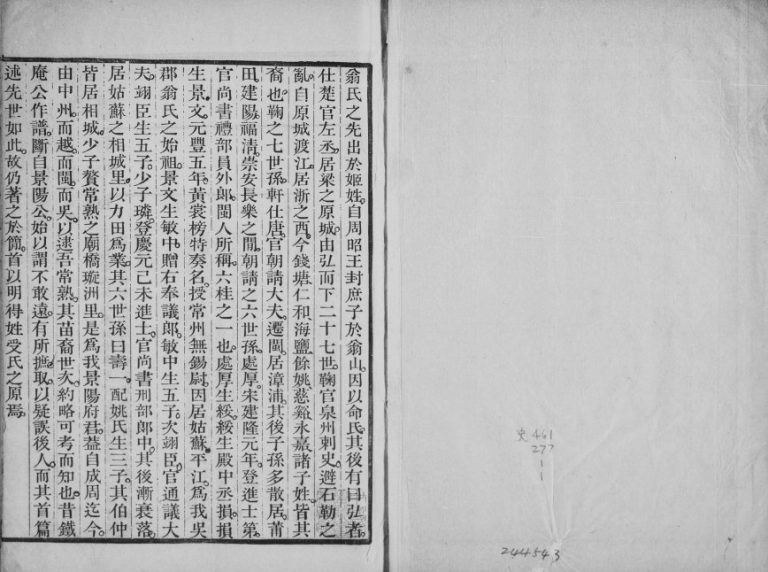 翁氏之先出於姬姓。自周昭王封庶子於翁山。因以命氏。其後有曰弘者。
仕楚官左丞。居梁之原城。由弘而下二十七世。鞠官泉州刺史。避石勒之
亂。自原城渡江。居浙之西。今錢塘仁和海鹽餘姚慈谿永嘉諸子姓。皆其
裔也。鞠之七世孫軒仕唐。官朝請大夫。遷閩。居漳浦。其後子孫多散居莆
田建陽福清崇安長樂之間。朝請之六世孫處厚。宋建隆元年。登進士第。
官尚書禮部員外郎。閩人所稱六桂之一也。處厚生綬。綬生殿中丞損。損
生景文。元豐五年。黃裳榜特奏名。授常州無錫尉。因居姑蘇平江。爲我吳
郡翁氏之始祖。景文生敏中。贈右奉議郎。敏中生五子。次翊臣。官通議大
夫。翊臣生五子。少子璘。登慶元己未進士。官尚書刑部郎中。其後漸衰落。
居姑蘇之相城里。以力田爲業。其六世孫曰壽一。配姚氏。生三子。其伯仲
皆居相城。少子贅常熟之廟橋璇洲里。是爲我景陽府君。葢自成周迄今。
由中州。而越。而閩。而吳。以逮吾常熟。其苗裔世次。約略可考而知也。昔鐵
庵公作譜。斷自景陽公。始以謂不敢遠。有所摭取。以疑誤後人。而其首篇
述先世如此。故仍著之於簡首。以明得姓受氏之原焉。
史 461
277
1
1
244543